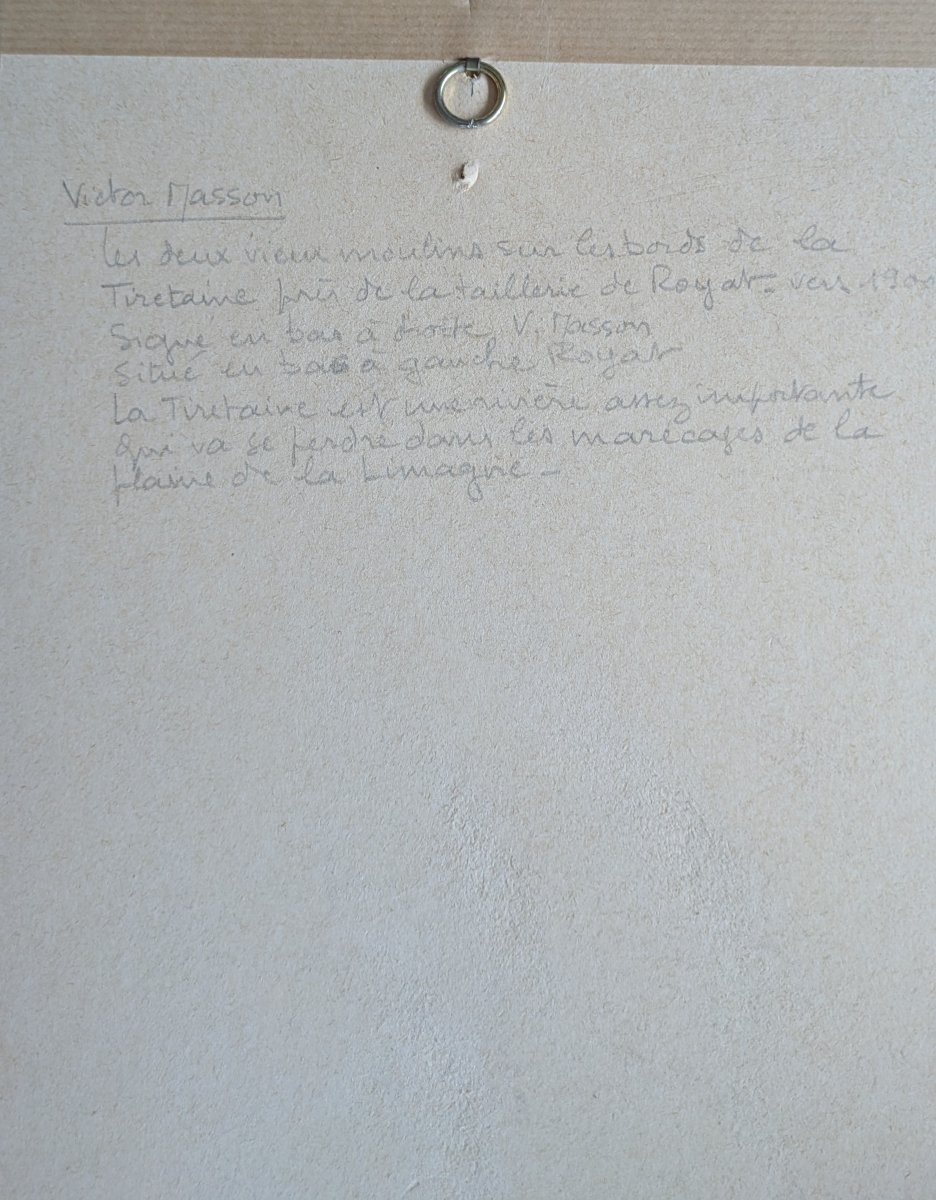 Victor Masson
Les deux vieux moulins sur les bords de la
Tiretaine près de la taillerie de Royat - vers 1900
Signé en bas à droite V. Masson
Situé en bas à gauche Royat
La Tiretaine est une rivière assez importante
qui va se perdre dans les marécages de la
plaine de la Limagne -